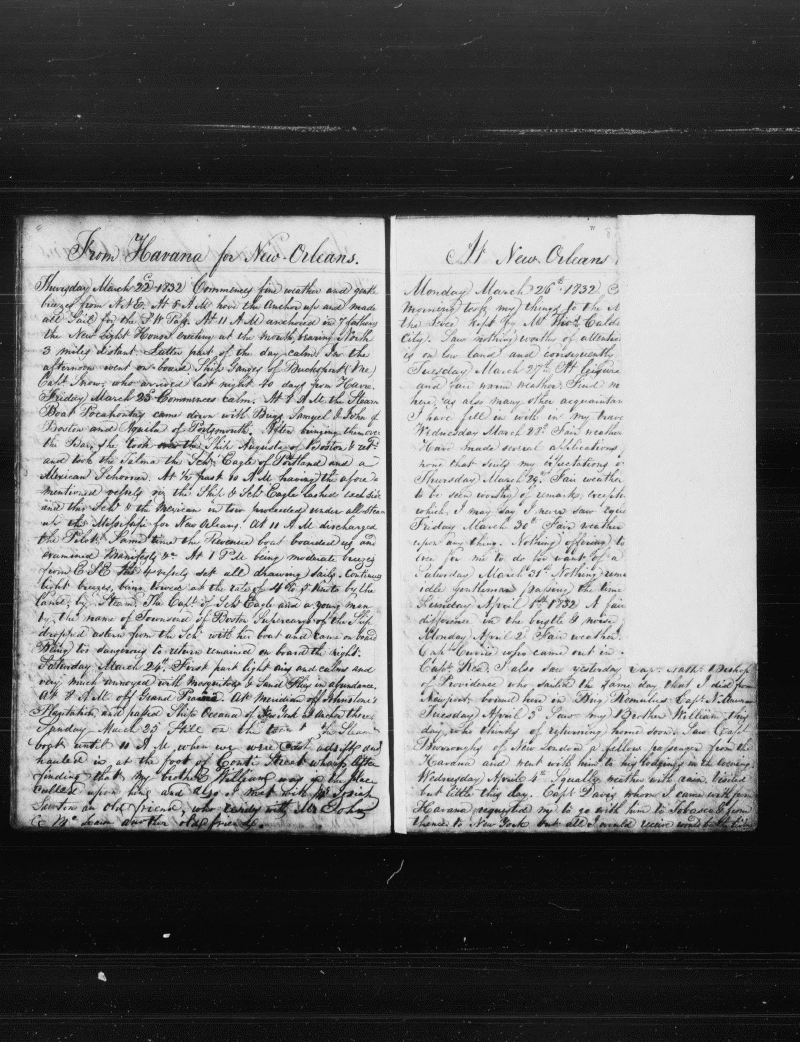 From Havana for New-Orleans.
Thursday March 22d 1832 Commences fine weather and gentle
breezes from N.E. At 8 A M hove the Anchor up and made
all Sail for the S W Pass. At 11 A M anchored in 7 fathoms
the New Light House bearing at the mouth, bearing North
3 miles distant. Latter part of the day calm. In the
afternoon went on board Ship Ganges of Bucksport (Me)
Capt Snow, who arrived last night 40 days from Havre.
Friday March 23 Commences calm. At 8 A M the Steam
Boat Pocahontas came down with Brigs Samuel & John of
Boston and of Portsmouth. After bringing them over
the Bar, She took the Ship Augusta of Boston & retd
and took the Talma the Schr Eagle of Portland and a
Mexican Schooner. At ½ past 10 A M having the afore
mentioned vessels viz the Ship & Schr Eagle lashed each side
and this Schr & the Mexican in tow proceeded under all steam
up the Mississippi for New Orleans. At 11 A M discharged
the Pilot. Same time the Revenue boat boarded us and
examined Manifests &c. At 1 P M being moderate breezes
from E S E the 4 vessels set all drawing Sails. Continues
light breezes, being towed at the rate of 4 to 5 knots by the
land, by Steam. The Capt of Schr Eagle and a young man
by the name of Townsend of Boston Supercargo of the Ship
dropped astern from the Schr with her boat and came on board
Being too dangerous to return remained on board the night.
Saturday March 24th. First part light airs and calms and
very much annoyed with mosquitoes & Sand flies in abundance.
At 8 A M off Grand Prairie. At Meridian off Johnston's
Plantation, and passed Ship Oceana of New York at anchor there.
Sunday March 25 Still on the tow of the Steam
boat until 11 A M, when we were cast adrift and
hauled in at the foot of Conti Street wharf. After
finding that my brother William was in the place
called upon him and also I met with Mr Isaiah
an old friend, who resides with Mr John
C. another old friend.
At New Orleans
Monday March 26th 1832
morning took my things to the
the Levee kept by Mr Thos
City. Saw nothing worthy of attention
is on low land and consequently
Tuesday March 27th. At leisure
and fair warm weather. Find
here, as also many other acquaintan
I have fell in with in my trave
Wednesday March 28th Fair weather
Have made several applications
none that suits my expectations
Thursday March 29th. Fair weather
to be seen worthy of remark, except
which I may say I never saw equ
Friday March 30th Fair weather
upon any thing. Nothing offering to
even for me to do for want of a
Saturday March 31st Nothing rem
idle gentleman passing the time
Sunday April 1st 1832 A fair
difference in the bustle & noise
Monday April 2 Fair weather.
Capt Currie who came out in
Capt Rea. I also saw yesterday Capt Nathl Bishop
of Providence who sailed the same day that I did from
Newport, bound here in Brig Romulus Capt
Tuesday April 3d Saw my Brother William this
day, who thinks of returning home soon. Saw Capt
Burroughs of New London a fellow passenger from the
Havana and went with him to his lodgings in the evening.
Wednesday April 4th Squally weather with rain. Visited
but little this day. Capt Davis whom I came with from
Havana requested me to go with him to Tobasco & from
thence to New York but all I would receive would be